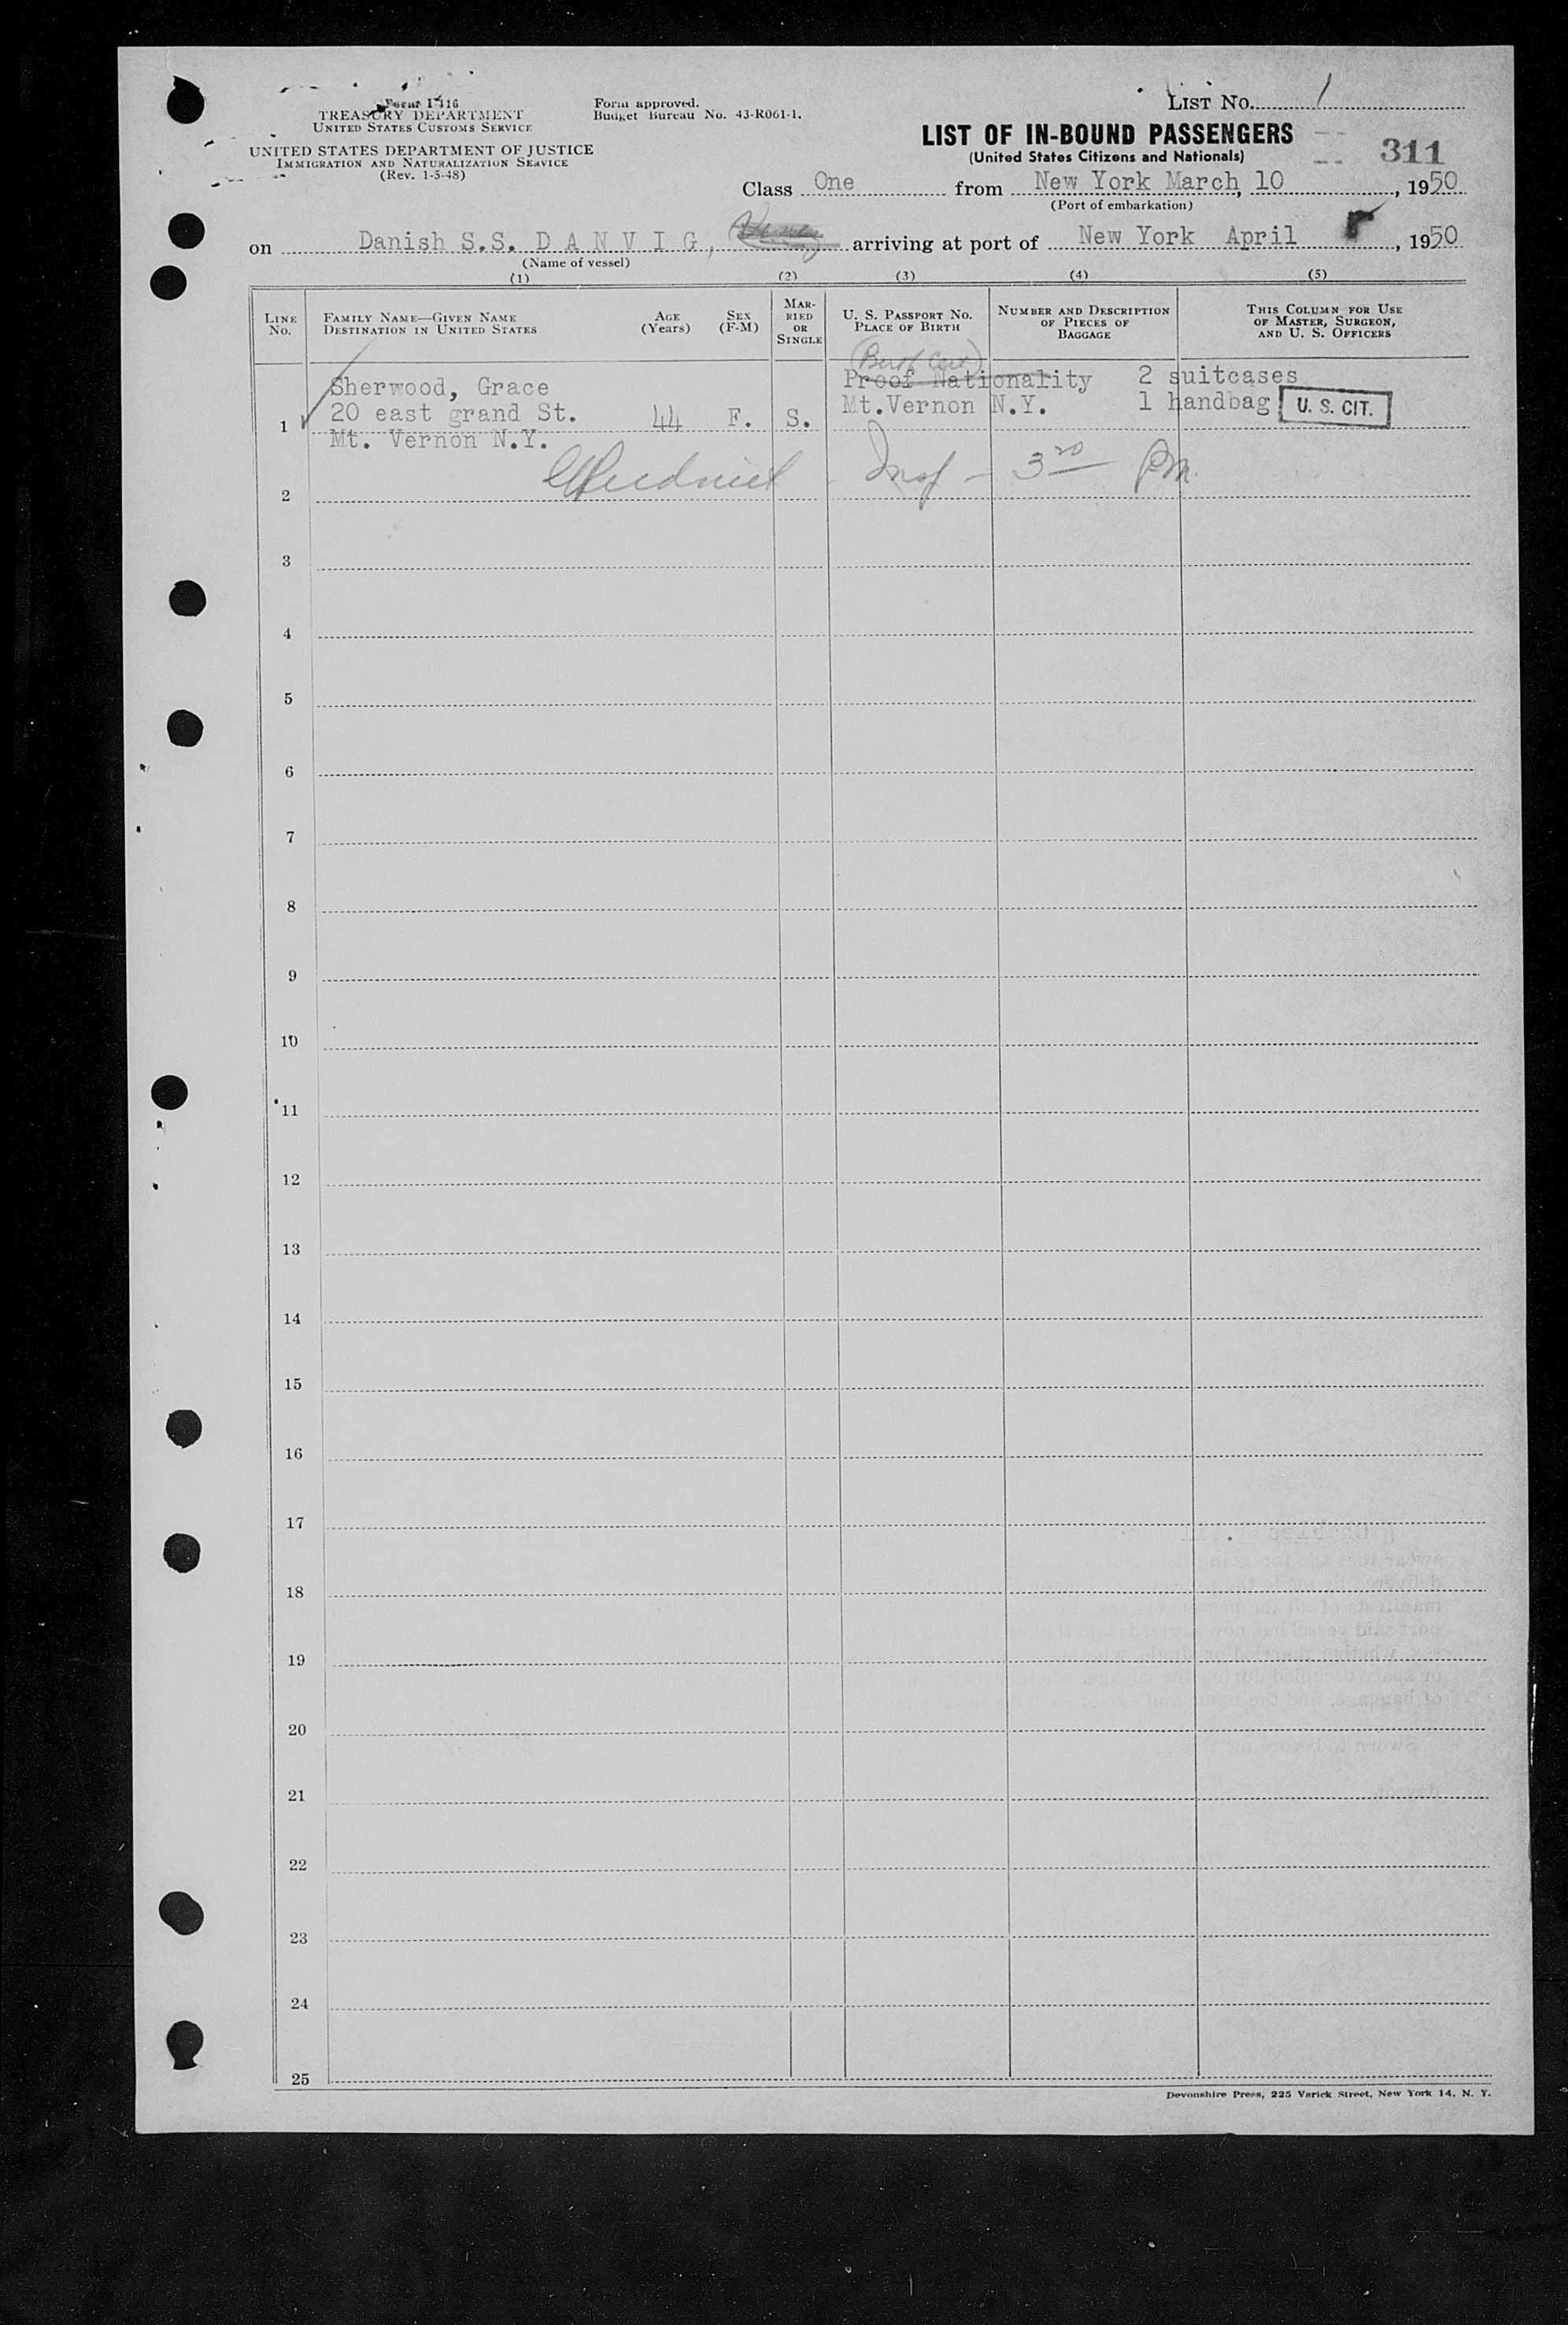 Form I-416
TREASURY DEPARTMENT
UNITED STATES CUSTOMS SERVICE
UNITED STATES DEPARTMENT OF JUSTICE
IMMIGRATION AND NATURALIZATION SERVICE
(Rev. 1-5-48)
Form approved.
Budget Bureau No. 43-R061-1.
LIST NO. 1
LIST OF IN-BOUND PASSENGERS
(United States Citizens and Nationals)
311
Class One from New York March, 10, 1950
(Port of embarkation)
on Danish S.S. D A N V I G, arriving at port of New York April , 1950
(Name of vessel)
(1) (2) (3) (4) (5)
LINE No.
FAMILY NAME—GIVEN NAME
DESTINATION IN UNITED STATES
AGE (Years)
SEX (F-M)
MARRIED OR SINGLE
U. S. PASSPORT NO.
PLACE OF BIRTH
NUMBER AND DESCRIPTION OF PIECES OF BAGGAGE
THIS COLUMN FOR USE OF MASTER, SURGEON, AND U. S. OFFICERS
(Birth Cert)
Sherwood, Grace Proof Nationality 2 suitcases
1 20 east grand St. 44 F. S. Mt.Vernon N.Y. 1 handbag U. S. CIT.
Mt. Vernon N.Y.
Insp - 3 PM.
2
3
4
5
6
7
8
9
10
11
12
13
14
15
16
17
18
19
20
21
22
23
24
25
Devonshire Press, 225 Varick Street, New York 14, N. Y.